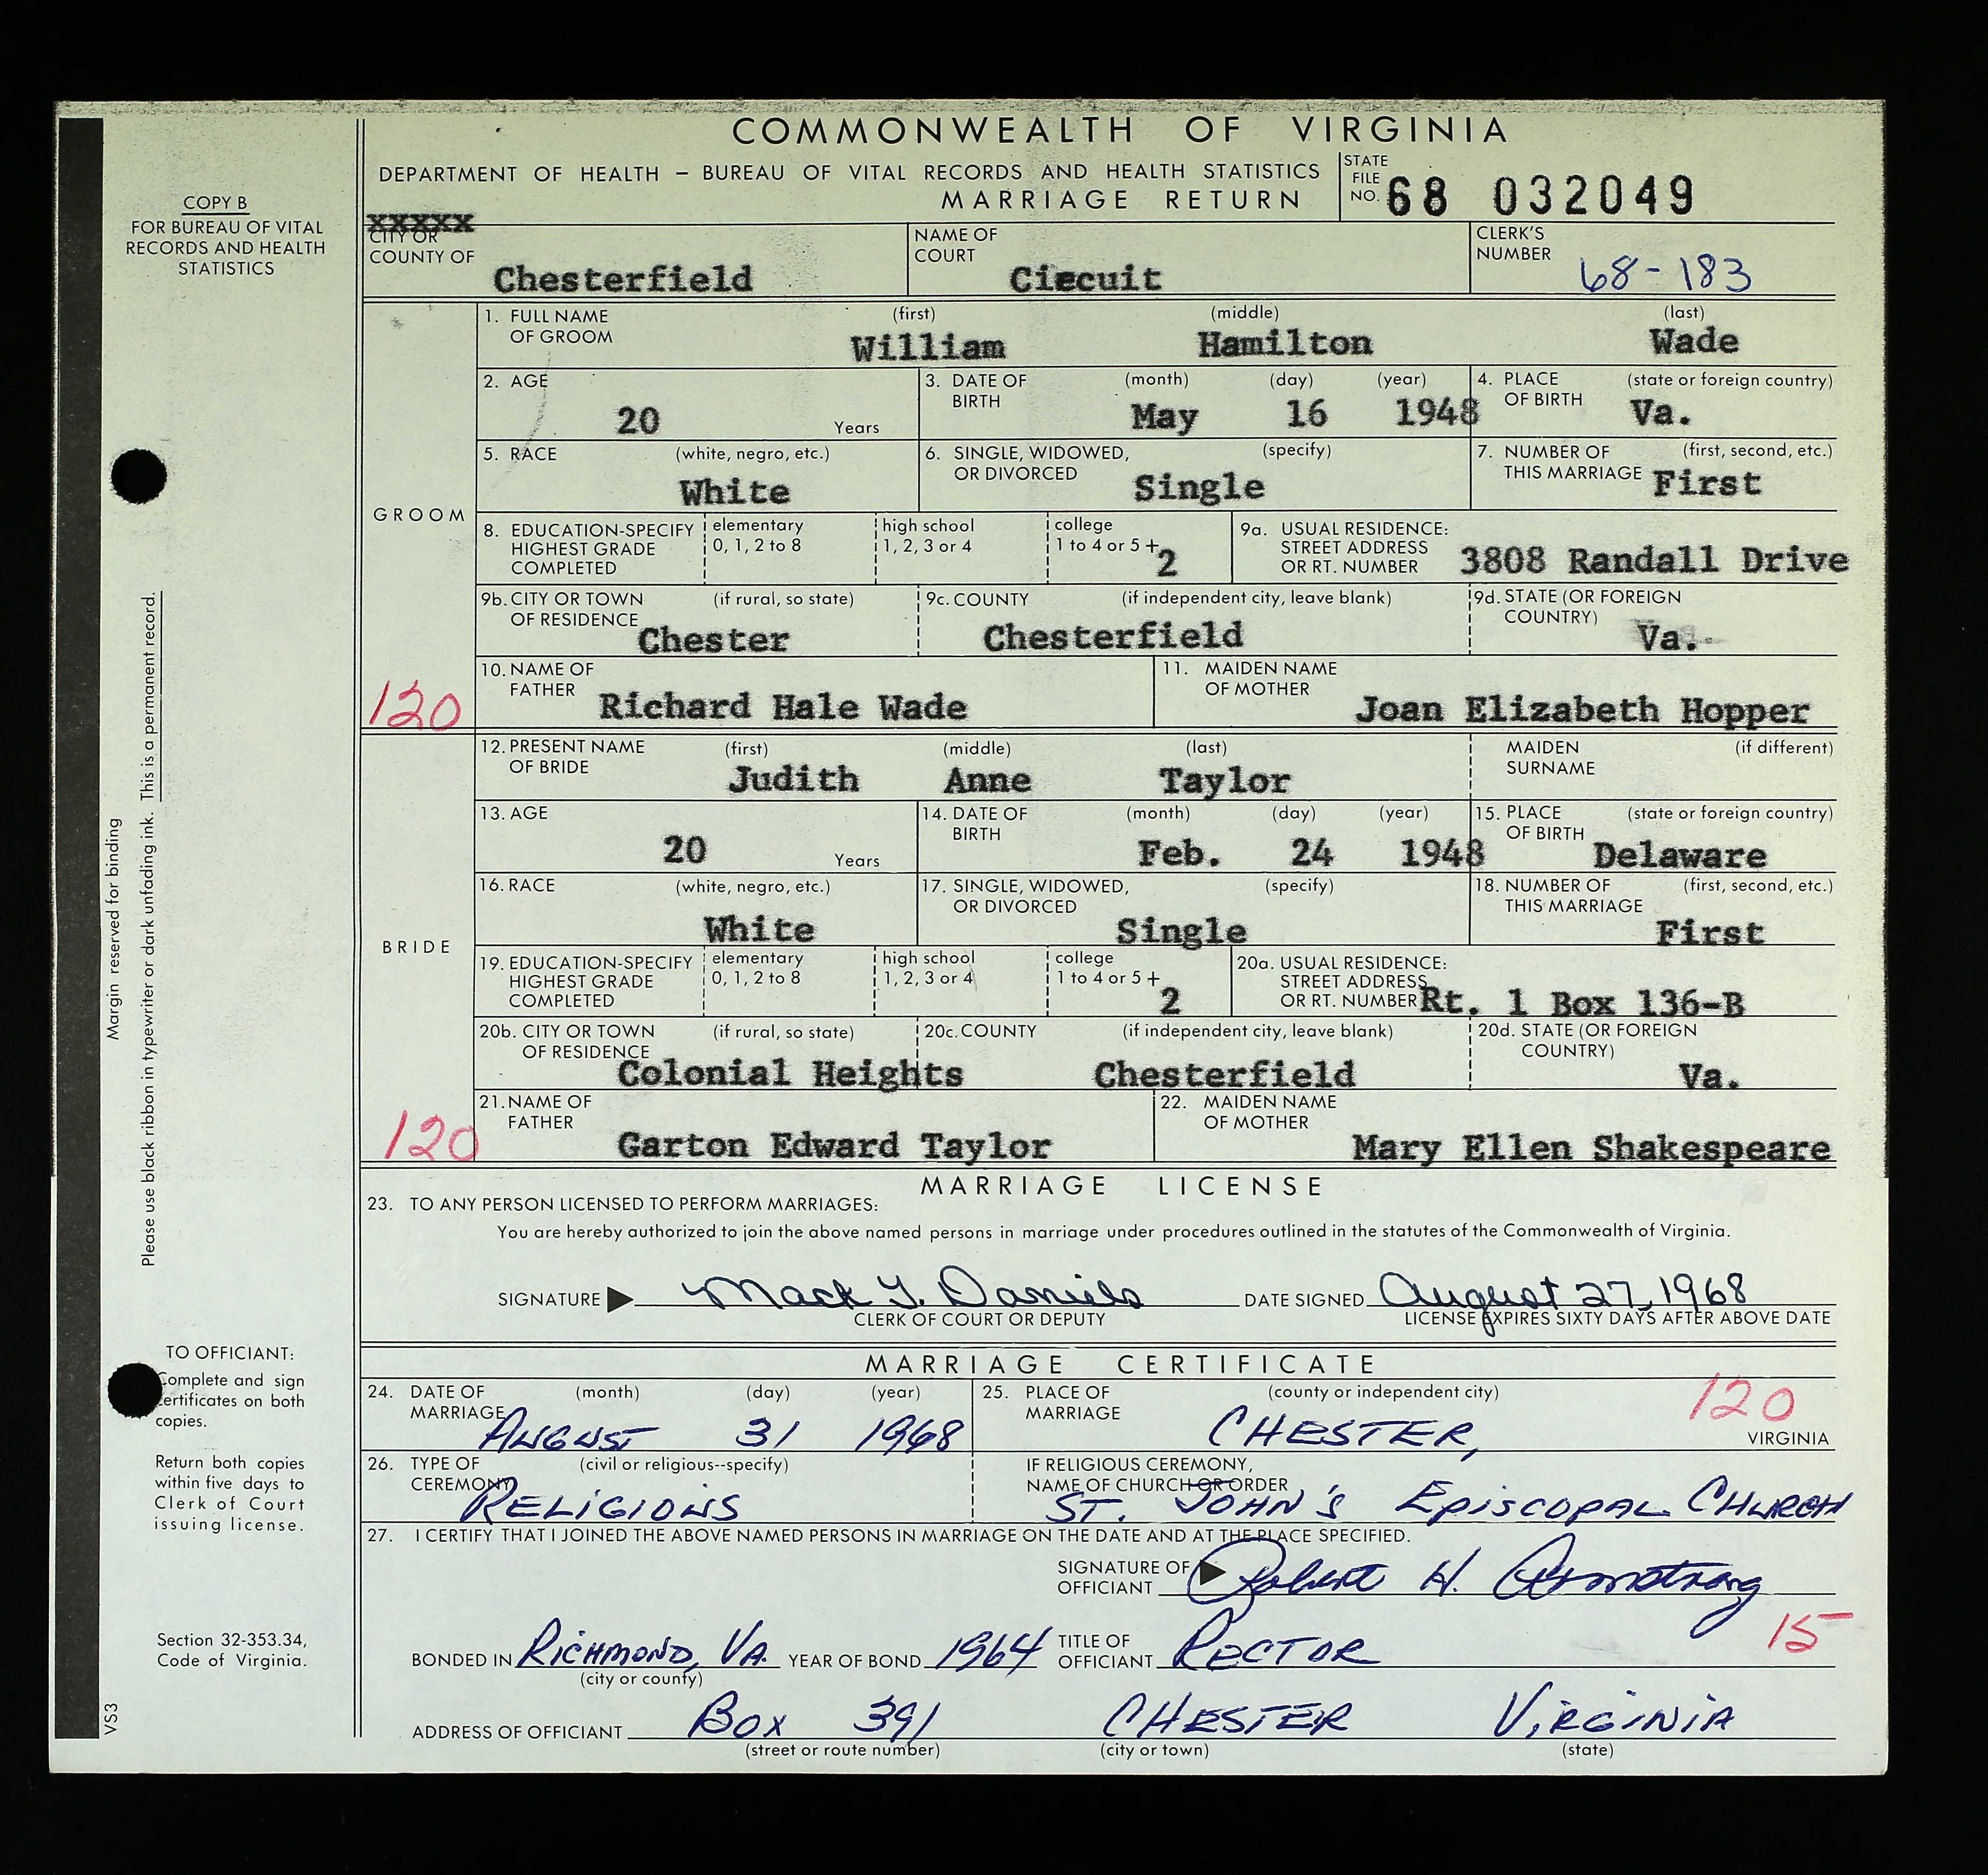 COMMONWEALTH OF VIRGINIA
DEPARTMENT OF HEALTH – BUREAU OF VITAL RECORDS AND HEALTH STATISTICS
MARRIAGE RETURN
STATE FILE NO. 68 032049
COPY B
FOR BUREAU OF VITAL
RECORDS AND HEALTH
STATISTICS
XXXXX
CITY OR
COUNTY OF Chesterfield
NAME OF
COURT Ciecuit
CLERK'S
NUMBER 68-183
GROOM
1. FULL NAME (first) (middle) (last)
OF GROOM William Hamilton Wade
2. AGE 20 Years
3. DATE OF (month) (day) (year)
BIRTH May 16 1948
4. PLACE (state or foreign country)
OF BIRTH Va.
5. RACE (white, negro, etc.)
White
6. SINGLE, WIDOWED, (specify)
OR DIVORCED Single
7. NUMBER OF (first, second, etc.)
THIS MARRIAGE First
8. EDUCATION-SPECIFY elementary high school college
HIGHEST GRADE 0, 1, 2 to 8 1, 2, 3 or 4 1 to 4 or 5 +
COMPLETED 2
9a. USUAL RESIDENCE:
STREET ADDRESS
OR RT. NUMBER 3808 Randall Drive
9b. CITY OR TOWN (if rural, so state)
OF RESIDENCE Chester
9c. COUNTY (if independent city, leave blank)
Chesterfield
9d. STATE (OR FOREIGN
COUNTRY) Va.
10. NAME OF
FATHER Richard Hale Wade
11. MAIDEN NAME
OF MOTHER Joan Elizabeth Hopper
120
BRIDE
12. PRESENT NAME (first) (middle) (last)
OF BRIDE Judith Anne Taylor
MAIDEN (if different)
SURNAME
13. AGE 20 Years
14. DATE OF (month) (day) (year)
BIRTH Feb. 24 1948
15. PLACE (state or foreign country)
OF BIRTH Delaware
16. RACE (white, negro, etc.)
White
17. SINGLE, WIDOWED, (specify)
OR DIVORCED Single
18. NUMBER OF (first, second, etc.)
THIS MARRIAGE First
19. EDUCATION-SPECIFY elementary high school college
HIGHEST GRADE 0, 1, 2 to 8 1, 2, 3 or 4 1 to 4 or 5 +
COMPLETED 2
20a. USUAL RESIDENCE:
STREET ADDRESS
OR RT. NUMBER Rt. 1 Box 136-B
20b. CITY OR TOWN (if rural, so state)
OF RESIDENCE Colonial Heights
20c. COUNTY (if independent city, leave blank)
Chesterfield
20d. STATE (OR FOREIGN
COUNTRY) Va.
21. NAME OF
FATHER Garton Edward Taylor
22. MAIDEN NAME
OF MOTHER Mary Ellen Shakespeare
120
MARRIAGE LICENSE
23. TO ANY PERSON LICENSED TO PERFORM MARRIAGES:
You are hereby authorized to join the above named persons in marriage under procedures outlined in the statutes of the Commonwealth of Virginia.
SIGNATURE Mack T. Daniels DATE SIGNED August 27, 1968
CLERK OF COURT OR DEPUTY LICENSE EXPIRES SIXTY DAYS AFTER ABOVE DATE
MARRIAGE CERTIFICATE
24. DATE OF (month) (day) (year)
MARRIAGE AUGUST 31 1968
25. PLACE OF (county or independent city)
MARRIAGE CHESTER, VIRGINIA
120
26. TYPE OF (civil or religious--specify)
CEREMONY RELIGIOUS
IF RELIGIOUS CEREMONY,
NAME OF CHURCH OR ORDER
ST. JOHN'S EPISCOPAL CHURCH
27. I CERTIFY THAT I JOINED THE ABOVE NAMED PERSONS IN MARRIAGE ON THE DATE AND AT THE PLACE SPECIFIED.
SIGNATURE OF
OFFICIANT Robert H. Armstrong
15
BONDED IN RICHMOND, VA. YEAR OF BOND 1964 TITLE OF OFFICIANT RECTOR
(city or county)
ADDRESS OF OFFICIANT BOX 391 CHESTER VIRGINIA
(street or route number) (city or town) (state)
Margin reserved for binding
Please use black ribbon in typewriter or dark unfading ink. This is a permanent record.
TO OFFICIANT:
Complete and sign
certificates on both
copies.
Return both copies
within five days to
Clerk of Court
issuing license.
Section 32-353.34,
Code of Virginia.
VS3